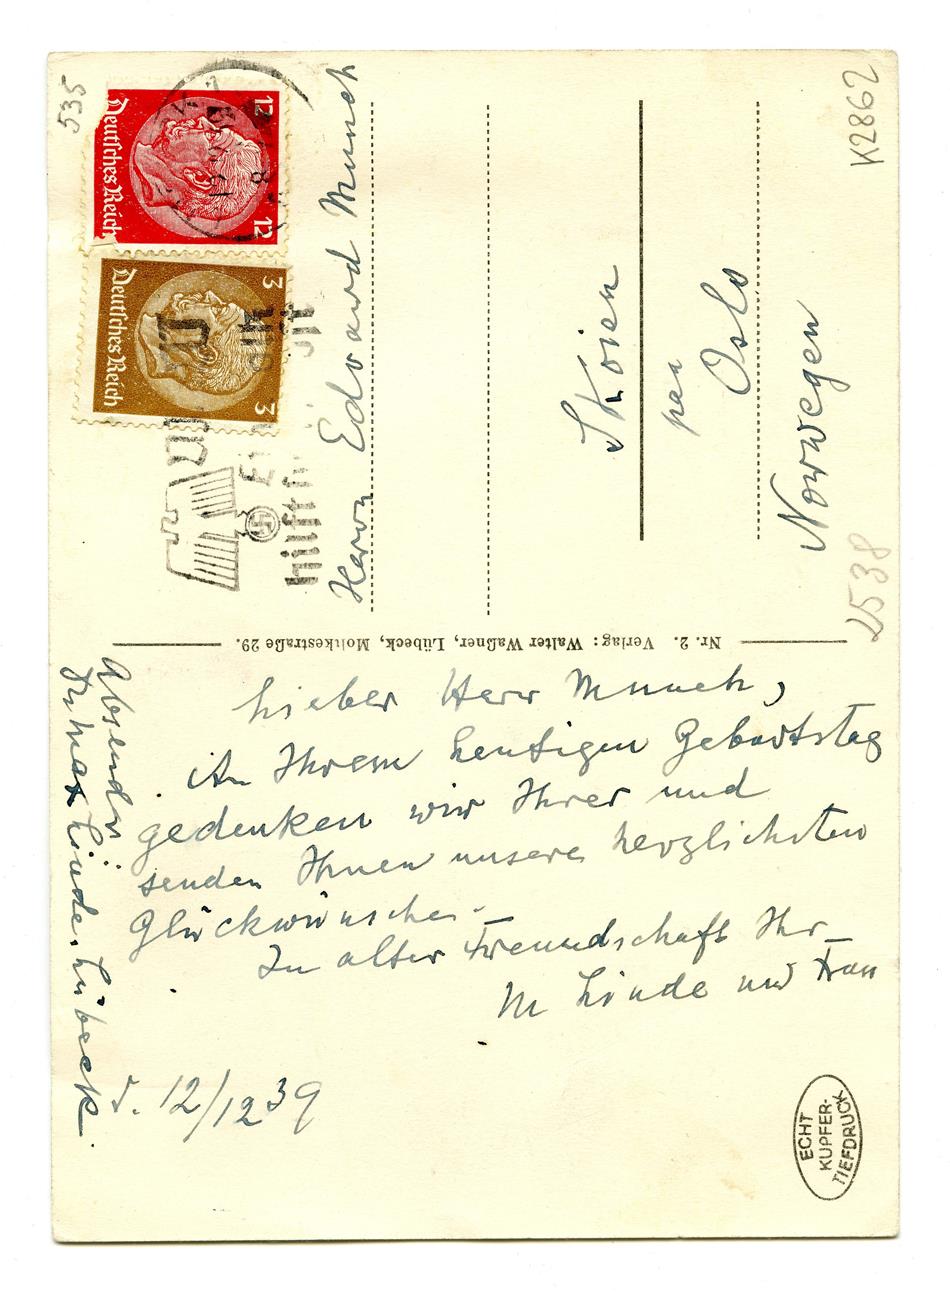 Lieber Herr Munch,
An Ihrem heutigen Geburtstag
gedenken wir Ihrer und
senden Ihnen unsere herzlichsten
Glückwünsche. –
In alter Freundschaft Ihr
M Linde und Frau
d. 12/12 39
Absender:
Dr Max Linde. Lübeck.
Nr. 2. Verlag: Walter Waßner, Lübeck, Moltkestraße 29.
Herrn Edvard Munch
Skøien
per
Oslo
Norwegen
12 12
Deutsches Reich
3 3
Deutsches Reich
hilft
535
K2862
2538
ECHT
KUPFER-
TIEFDRUCK